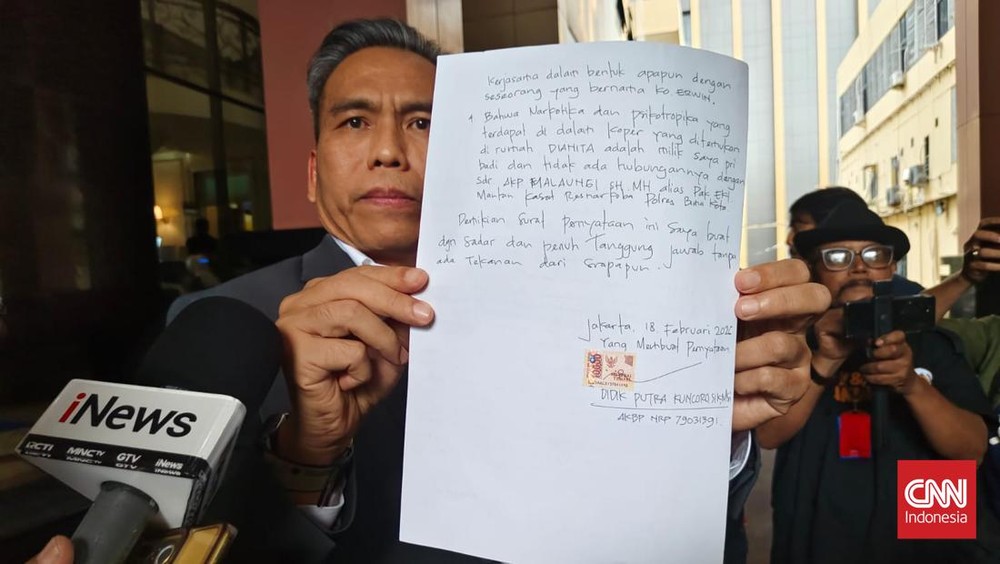 kerjasama dalam bentuk apapun dengan
seseorang yang bernama KO ERWIN.
4. Bahwa Narkotika dan psikotropika yang
terdapat di dalam koper yang ditemukan
di rumah DIANITA adalah milik saya pri
badi dan tidak ada hubungannya dengan
sdr AKP MALAUNGI SH MH alias Pak EKI
Mantan Kasat Resnarkoba Polres Bima Kota.
Demikian Surat pernyataan ini saya buat
dgn Sadar dan penuh Tanggung jawab tanpa
ada Tekanan dari siapapun.
Jakarta, 18 Februari
Yang Membuat Pernyataan
10000
DIDIK PUTRA KUNCORO SIK MSi
AKBP NRP 79031391.
iNews
RCTI MNCTV GTV iNews
CNN
Indonesia